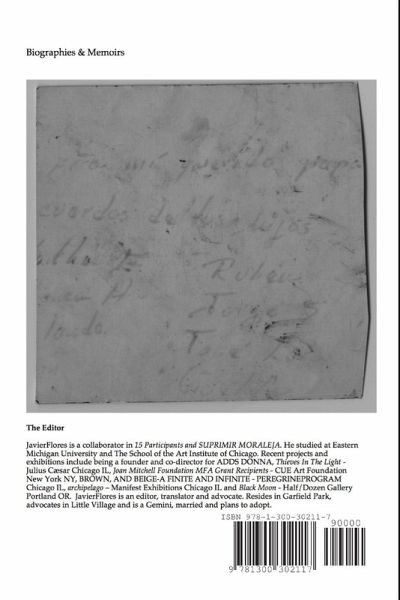 Biographies & Memoirs
mi querido papa
Ruben
Jorge
The Editor
JavierFlores is a collaborator in 15 Participants and SUPRIMIR MORALEJA. He studied at Eastern
Michigan University and The School of the Art Institute of Chicago. Recent projects and
exhibitions include being a founder and co-director for ADDS DONNA, Thieves In The Light -
Julius Cæsar Chicago IL, Joan Mitchell Foundation MFA Grant Recipients - CUE Art Foundation
New York NY, BROWN, AND BEIGE-A FINITE AND INFINITE - PEREGRINEPROGRAM
Chicago IL, archipelago – Manifest Exhibitions Chicago IL and Black Moon - Half/Dozen Gallery
Portland OR. JavierFlores is an editor, translator and advocate. Resides in Garfield Park,
advocates in Little Village and is a Gemini, married and plans to adopt.
ISBN 978-1-300-30211-7
90000
9 781300 302117